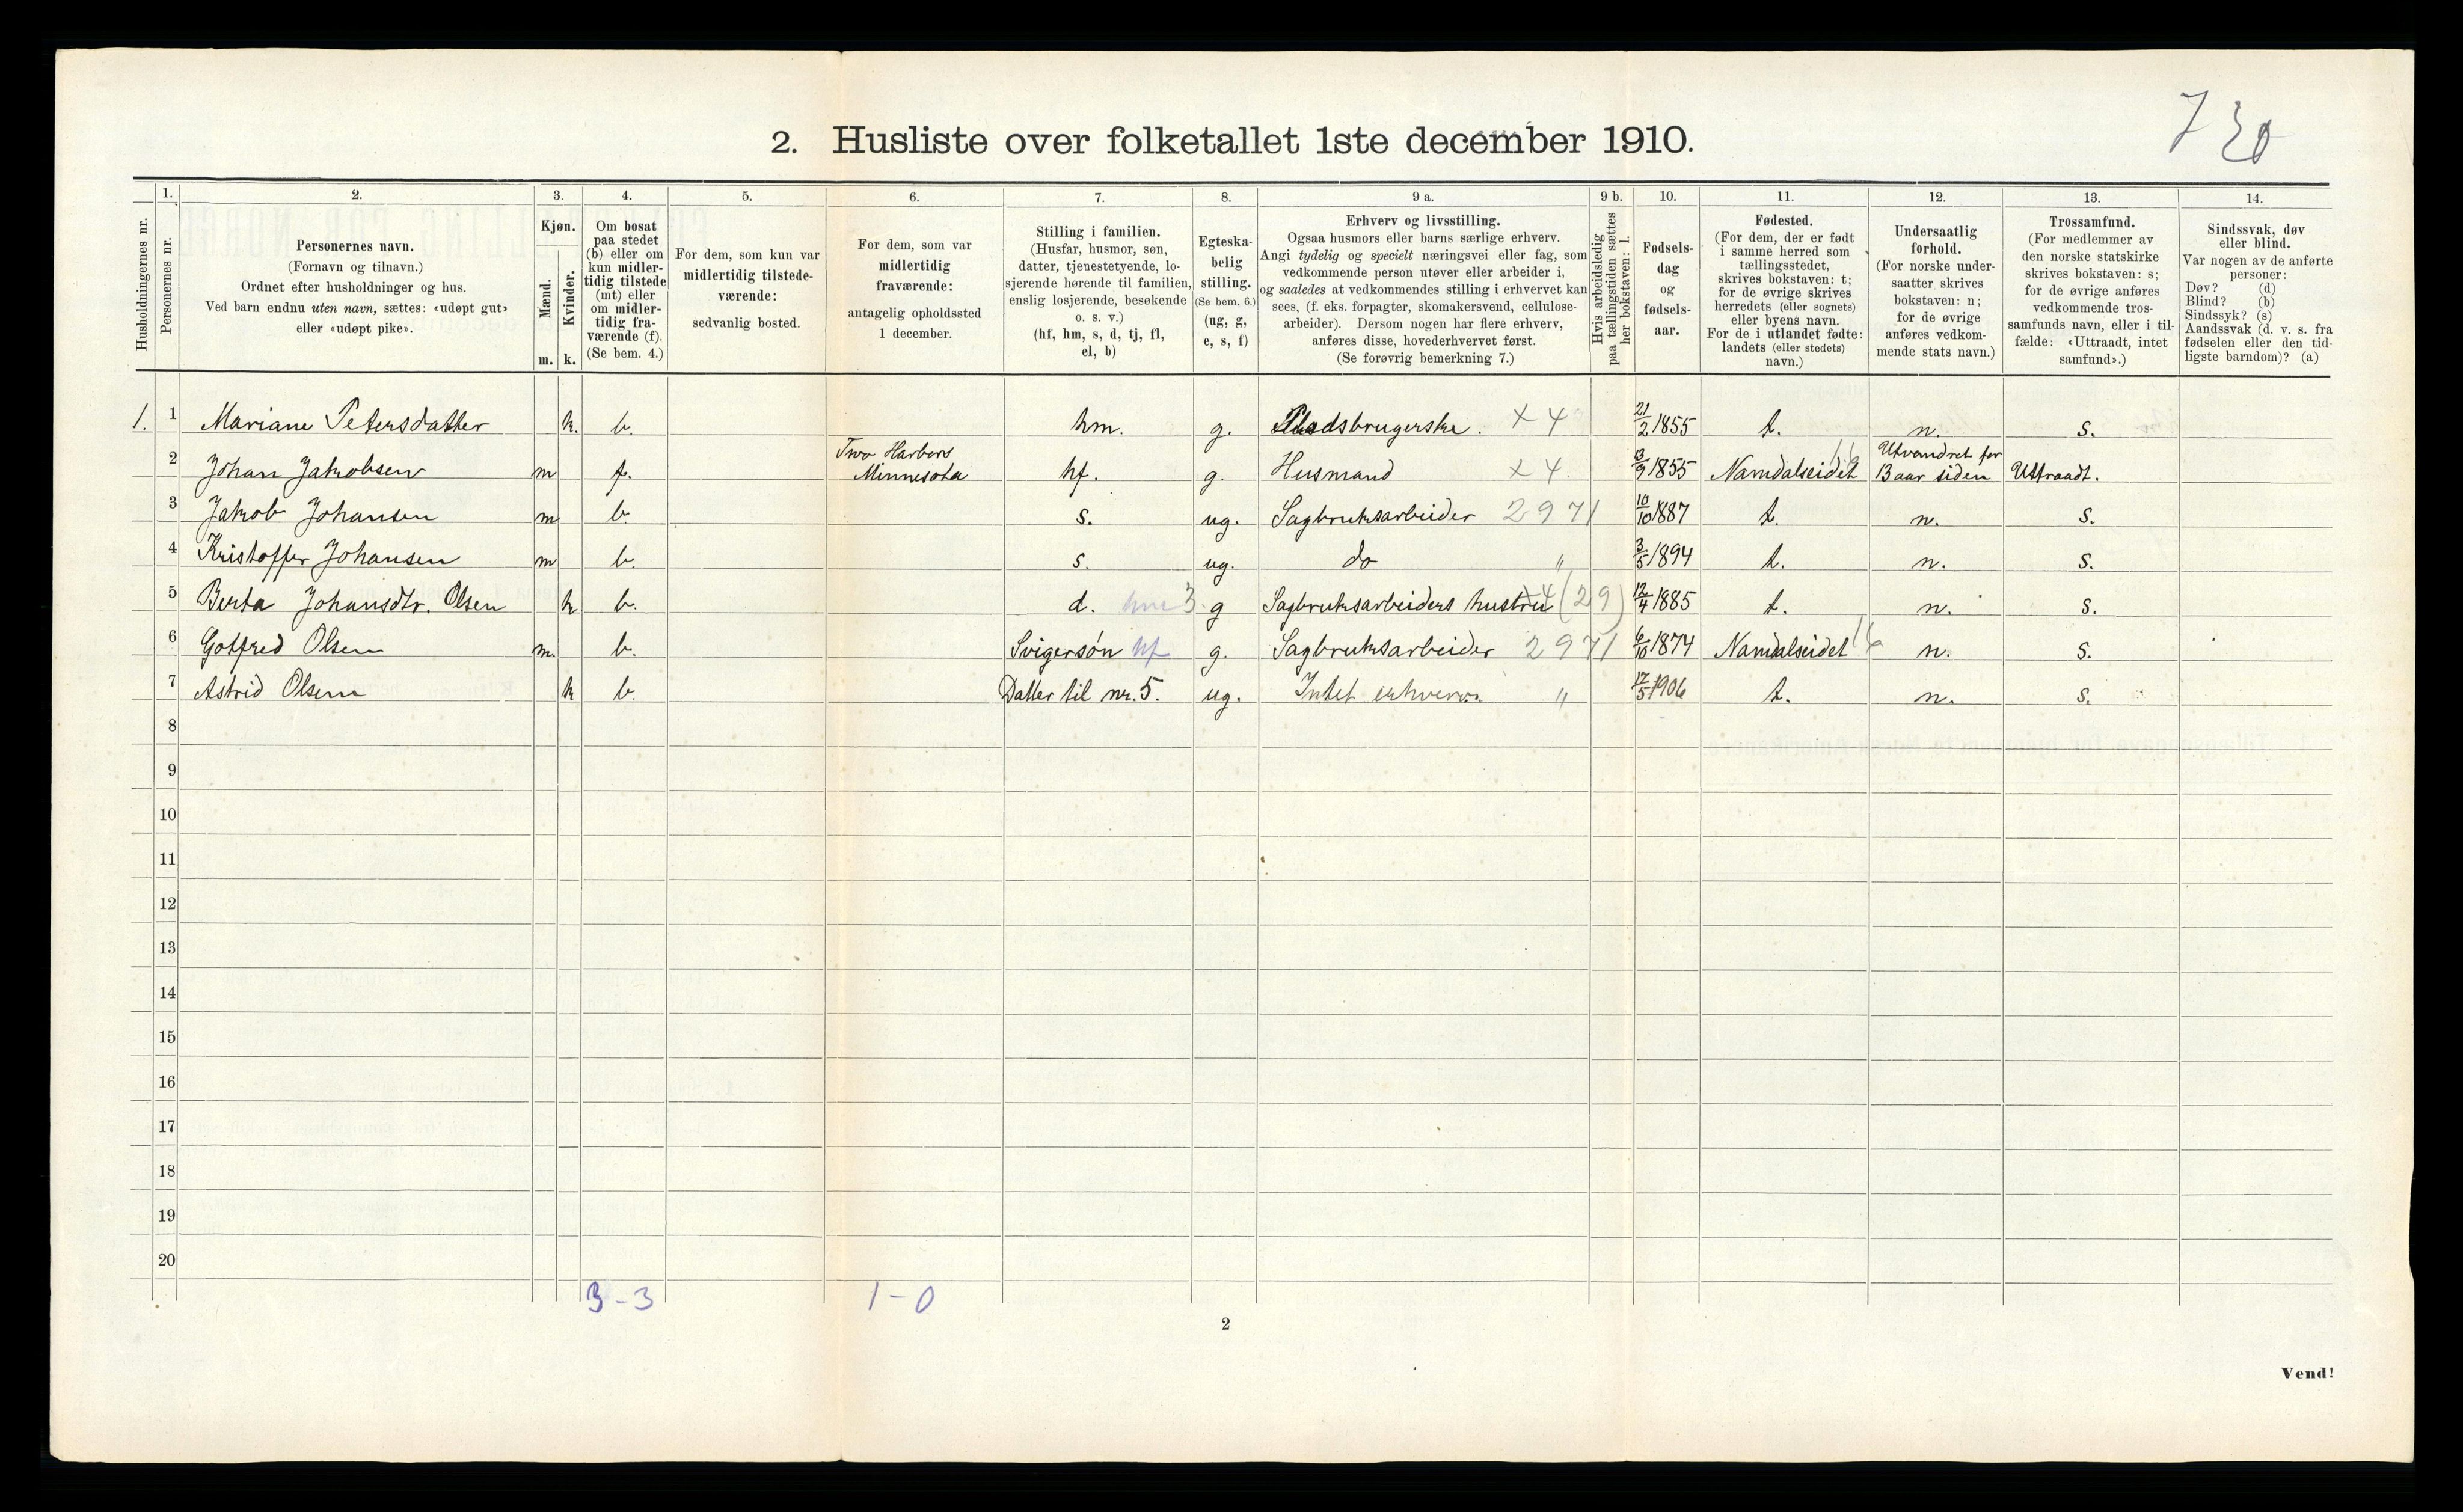 7 30
2. Husliste over folketallet 1ste december 1910.
Husholdningernes nr.
1.
Personernes nr.
2.
Personernes navn.
(Fornavn og tilnavn.)
Ordnet efter husholdninger og hus.
Ved barn endnu uten navn, sættes: «udøpt gut»
eller «udøpt pike».
3.
Kjøn.
Mænd.
Kvinder.
m. k.
4.
Om bosat
paa stedet
(b) eller om
kun midler-
tidig tilstede
(mt) eller
om midler-
tidig fra-
værende (f).
(Se bem. 4.)
5.
For dem, som kun var
midlertidig tilstede-
værende:
sedvanlig bosted.
6.
For dem, som var
midlertidig
fraværende:
antagelig opholdssted
1 december.
7.
Stilling i familien.
(Husfar, husmor, søn,
datter, tjenestetyende, lo-
sjerende hørende til familien,
enslig losjerende, besøkende
o. s. v.)
(hf, hm, s, d, tj, fl,
el, b)
8.
Egteska-
belig
stilling.
(Se bem. 6.)
(ug, g,
e, s, f)
9 a.
Erhverv og livsstilling.
Ogsaa husmors eller barns særlige erhverv.
Angi tydelig og specielt næringsvei eller fag, som
vedkommende person utøver eller arbeider i,
og saaledes at vedkommendes stilling i erhvervet kan
sees, (f. eks. forpagter, skomakersvend, cellulose-
arbeider). Dersom nogen har flere erhverv,
anføres disse, hovederhvervet først.
(Se forøvrig bemerkning 7.)
9 b.
Hvis arbeidsledig
paa tællingstiden sættes
her bokstaven: l.
10.
Fødsels-
dag
og
fødsels-
aar.
11.
Fødested.
(For dem, der er født
i samme herred som
tællingsstedet,
skrives bokstaven: t;
for de øvrige skrives
herredets (eller sognets)
eller byens navn.
For de i utlandet fødte:
landets (eller stedets)
navn.)
12.
Undersaatlig
forhold.
(For norske under-
saatter skrives
bokstaven: n;
for de øvrige
anføres vedkom-
mende stats navn.)
13.
Trossamfund.
(For medlemmer av
den norske statskirke
skrives bokstaven: s;
for de øvrige anføres
vedkommende tros-
samfunds navn, eller i til-
fælde: «Uttraadt, intet
samfund».)
14.
Sindssvak, døv
eller blind.
Var nogen av de anførte
personer:
Døv? (d)
Blind? (b)
Sindssyk? (s)
Aandssvak (d. v. s. fra
fødselen eller den tid-
ligste barndom)? (a)
1. 1 Mariane Petersdatter k. b. hm. g. Pladsbrugerske. x 4 21/2 1855 t. n. s.
2 Johan Jakobsen m f. Two Harbors Minnesota hf. g. Husmand x 4 13/9 1855 Namdalseidet 16 Utvandret for 13 aar siden Uttraadt.
3 Jakob Johansen m b. s. ug. Sagbruksarbeider 2971 10/10 1887 t. n. s.
4 Kristoffer Johansen m b. s. ug. do " 3/5 1894 t. n. s.
5 Berta Johansdtr. Olsen k b. d. 3 g Sagbruksarbeiders hustru x4 (29) 12/4 1885 t. n. s.
6 Gotfred Olsen m. b. Svigersøn hf g. Sagbruksarbeider 2971 6/10 1874 Namdalseidet 16 n. s.
7 Astrid Olsen k b. Datter til nr. 5. ug. Intet erhverv. " 17/5 1906 t. n. s.
8
9
10
11
12
13
14
15
16
17
18
19
20
3-3 1-0
2
Vend!